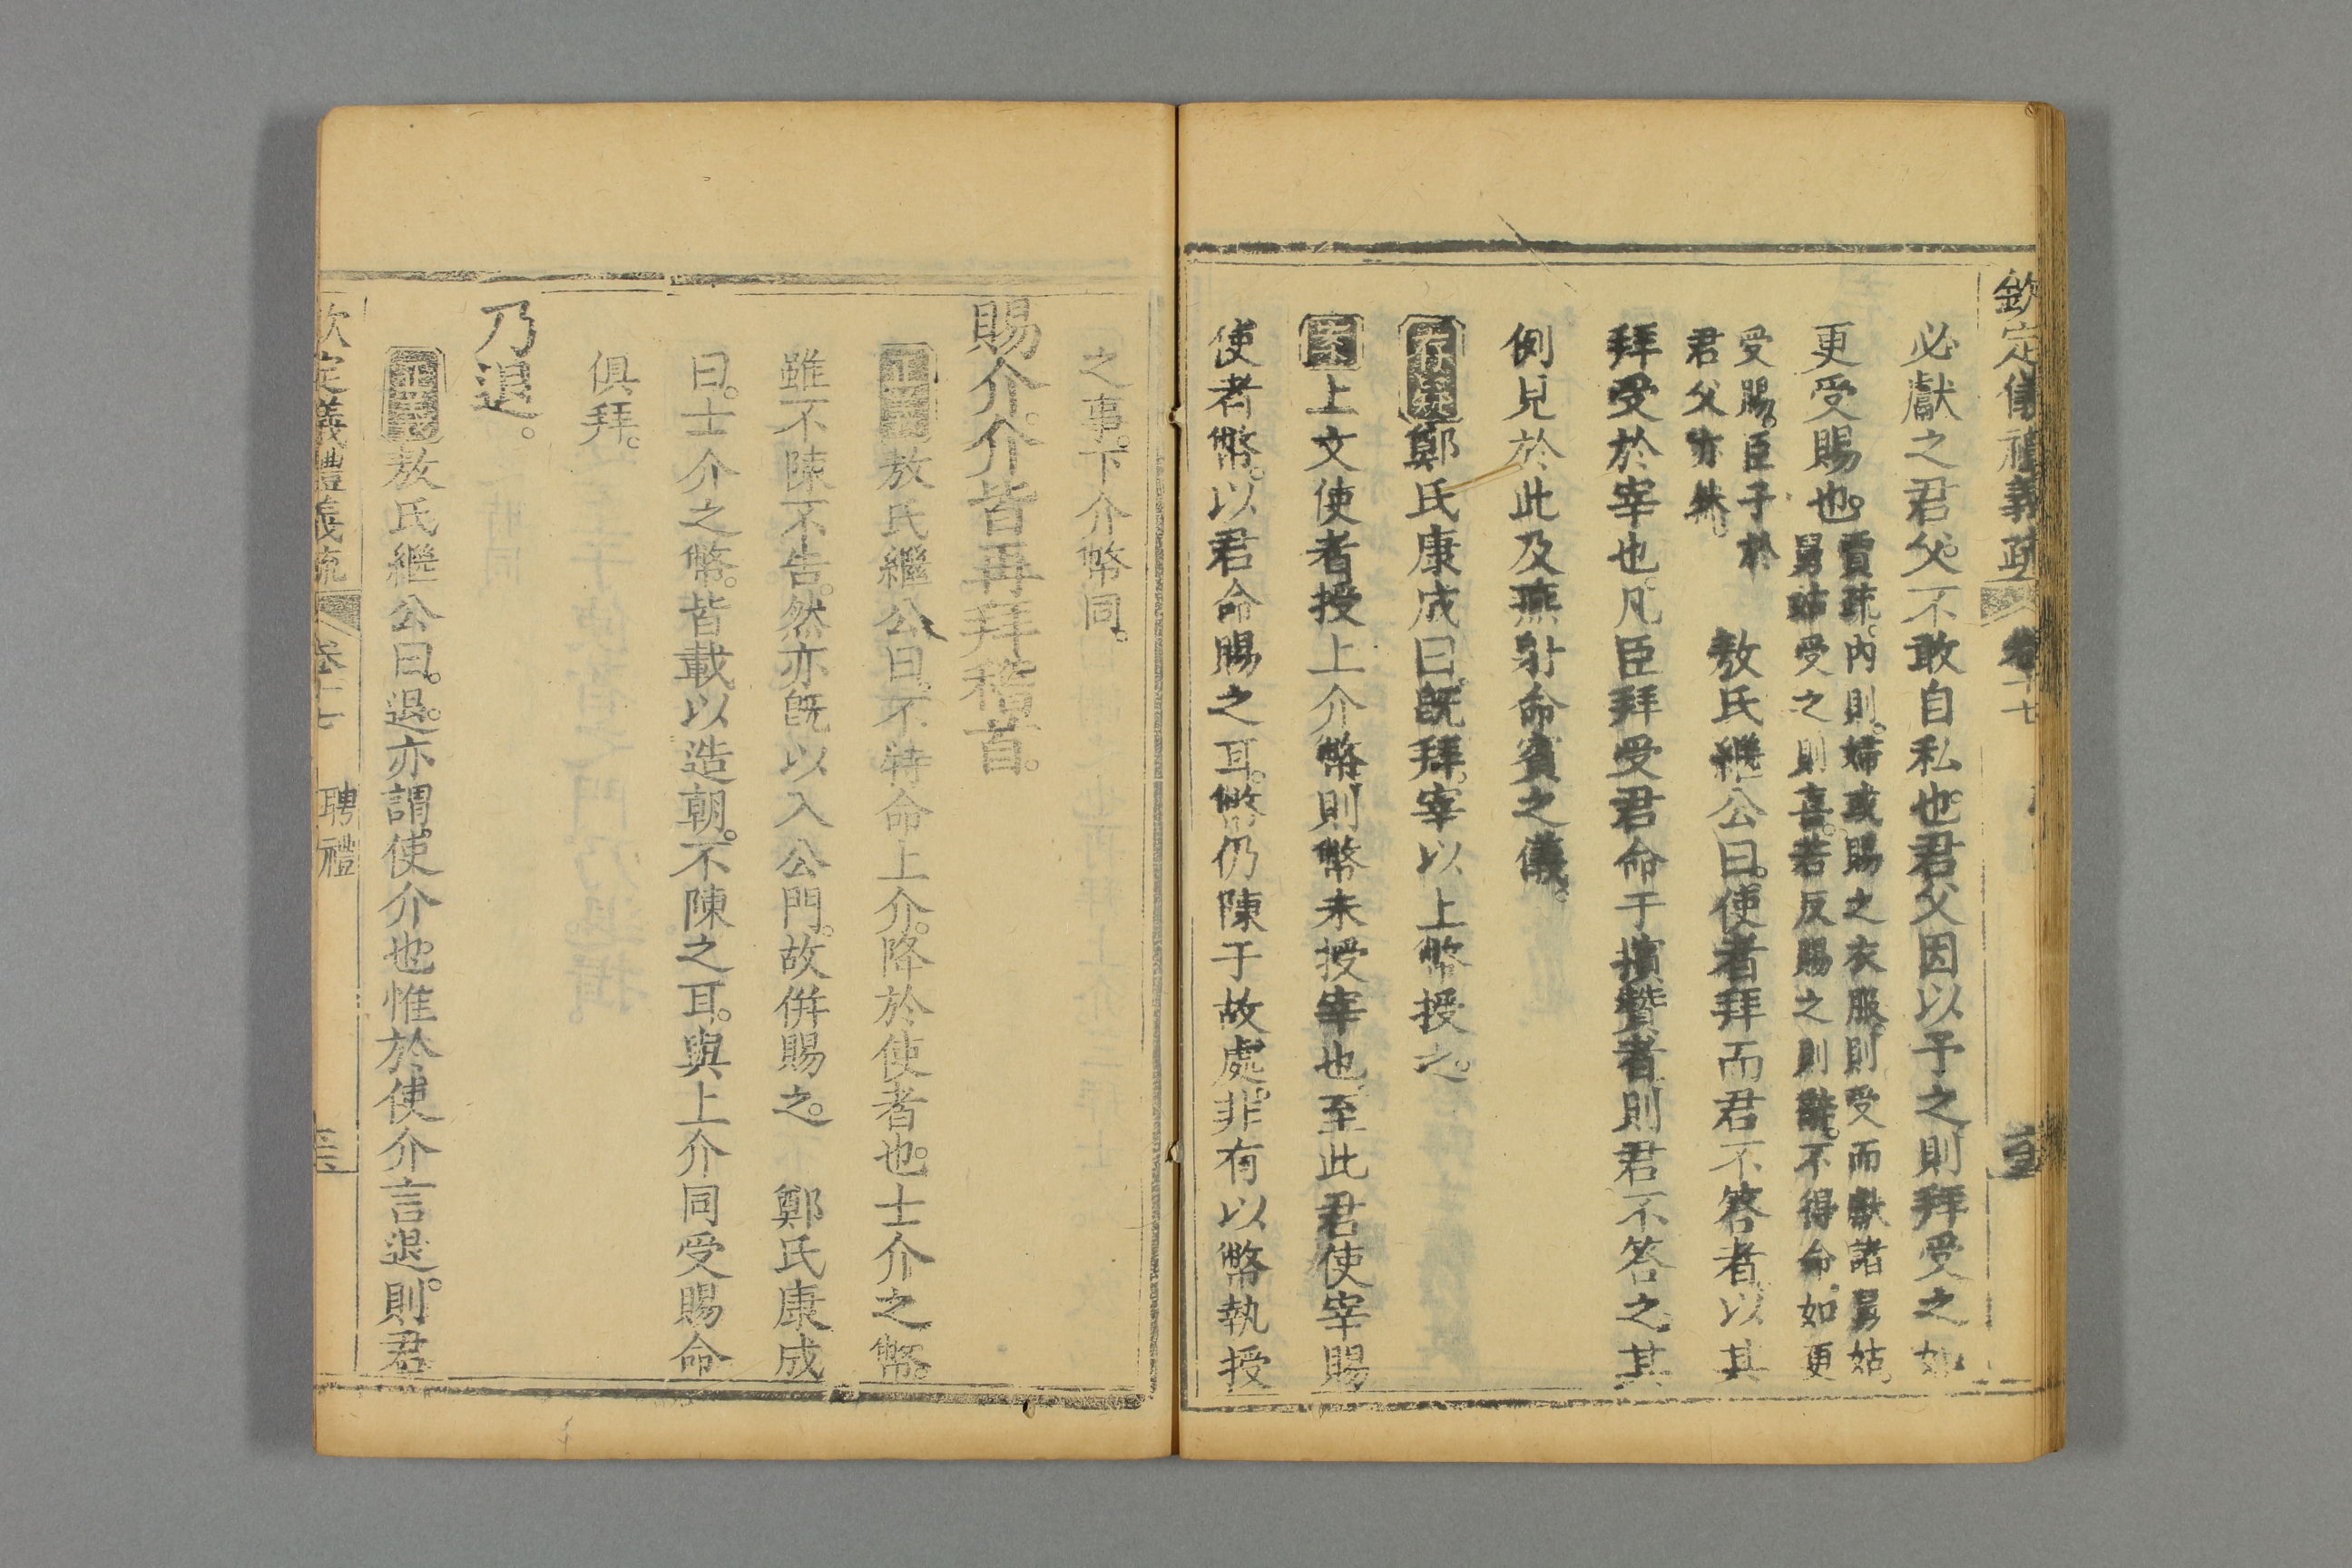 欽定儀禮義疏 卷十七
必獻之君父。不敢自私也。君父因以予之則拜受之如
更受賜也。賈疏。內則。婦或賜之衣服。則受而獻諸舅姑。
舅姑受之則喜。若反賜之則辭。不得命。如更
受賜。臣子於
君父亦然。
敖氏繼公曰。使者拜而君不答者。以其
拜受於宰也。凡臣拜受君命于擯贊者則君不答之。其
例見於此及燕射命賓之儀。
存疑鄭氏康成曰。既拜。宰以上幣授之。
案上文使者授上介幣則幣未授宰也。至此君使宰賜
使者幣。以君命賜之耳。幣仍陳于故處。非有以幣執授
之事。下介幣同。
賜介。介皆再拜稽首。
正義敖氏繼公曰。不特命上介。降於使者也。士介之幣。
雖不陳不告。然亦既以入公門。故併賜之。 鄭氏康成
曰。士介之幣。皆載以造朝。不陳之耳。與上介同受賜命
俱拜。
乃退。
正義敖氏繼公曰。退。亦謂使介也。惟於使介言退。則君
欽定儀禮義疏 卷十七 聘禮